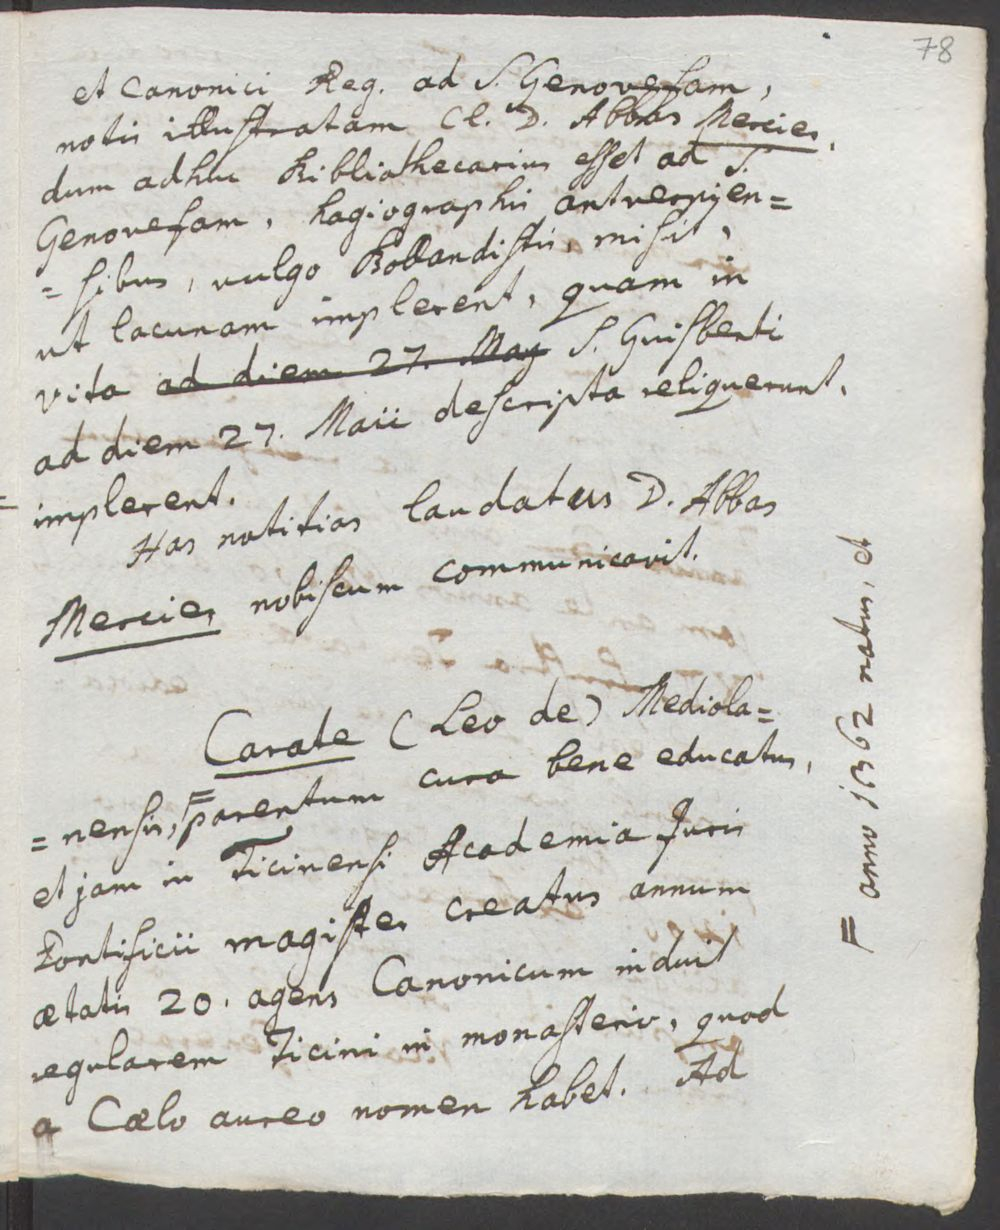 78
et Canonici Reg. ad S. Genovefam,
notis illustratam Cl. D. Abbas Mercier,
dum adhuc Bibliothecarius esset ad S.
Genovefam, hagiographis antverpien=
= sibus, vulgo Bollandistis, misit,
ut lacunam implerent, quam in
vita ad diem 27. May S. Guisberti
ad diem 27. Maii descripta reliquerunt,
implerent.
Has notitias laudatus D. Abbas
Mercier nobiscum communicavit.
Carate (Leo de) Mediola=
= nensis, parentum cura bene educatus,
et jam in Ticinensi Academia Juris
Pontificii magister creatus annum
ætatis 20. agens Canonicum induit
regularem Ticini in monasterio, quod
a Cælo aureo nomen habet. Ad
= anno 1562 natus, et